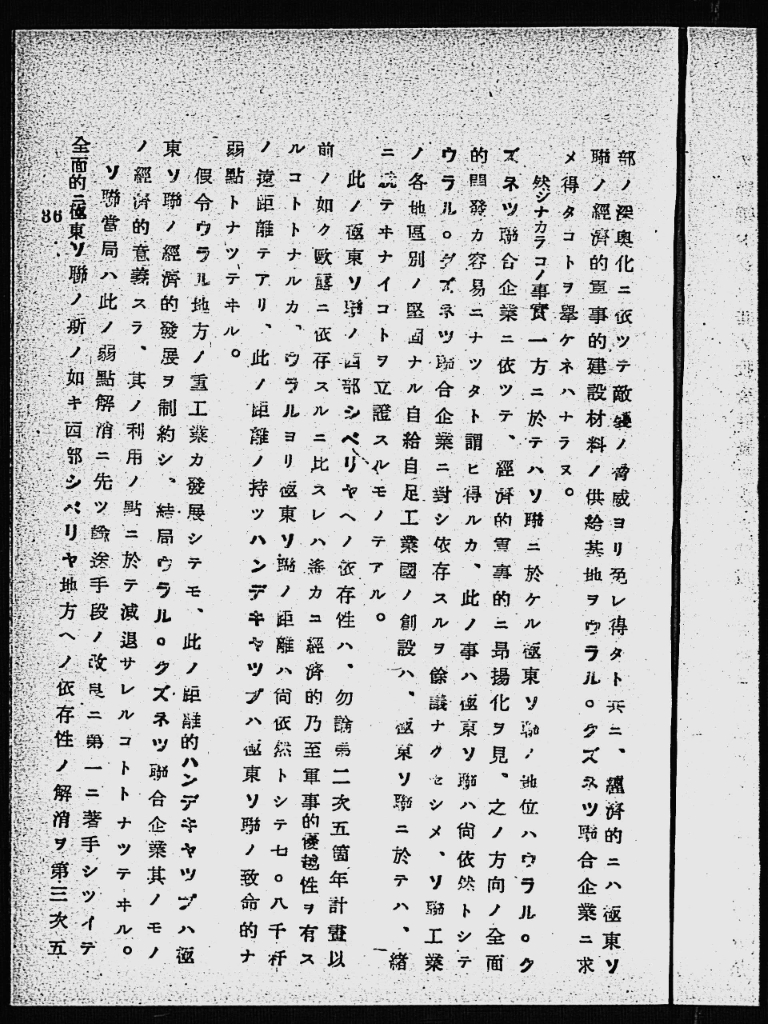 部ノ深奥化ニ依ツテ敵襲ノ脅威ヨリ免レ得タト共ニ、經濟的ニハ極東ソ
聯ノ經濟的軍事的建設材料ノ供給基地ヲウラル。クズネツ聯合企業ニ求
メ得タコトヲ擧ケネハナラヌ。
然シナカラコノ事實一方ニ於テハソ聯ニ於ケル極東ソ聯ノ地位ハウラル。ク
ズネツ聯合企業ニ依ツテ、經濟的軍事的ニ昂揚化ヲ見、之ノ方向ノ全面
的開發カ容易ニナツタト謂ヒ得ルカ、此ノ事ハ極東ソ聯ハ尙依然トシテ
ウラル。クズネツ聯合企業ニ對シ依存スルヲ餘議ナクセシメ、ソ聯工業
ノ各地區別ノ堅固ナル自給自足工業國ノ創設ハ、極東ソ聯ニ於テハ、緒
ニ就テヰナイコトヲ立證スルモノテアル。
此ノ極東ソ聯ノ西部シベリヤヘノ依存性ハ、勿論第二次五箇年計畫以
前ノ如ク歐露ニ依存スルニ比スレハ遙カニ經濟的乃至軍事的優越性ヲ有ス
ルコトトナルカ、ウラルヨリ極東ソ聯ノ距離ハ尙依然トシテ七。八千粁
ノ遠距離テアリ、此ノ距離ノ持ツハンデキヤツプハ極東ソ聯ノ致命的ナ
弱點トナツテヰル。
假令ウラル地方ノ重工業カ發展シテモ、此ノ距離的ハンデキヤツプハ極
東ソ聯ノ經濟的發展ヲ制約シ、結局ウラル。クズネツ聯合企業其ノモノ
ノ經濟的意義スラ、其ノ利用ノ點ニ於テ減退サレルコトトナツテヰル。
ソ聯當局ハ此ノ弱點解消ニ先ツ輸送手段ノ改良ニ第一ニ著手シツイデ
全面的ニ極東ソ聯ノ斯ノ如キ西部シベリヤ地方ヘノ依存性ノ解消ヲ第三次五
86